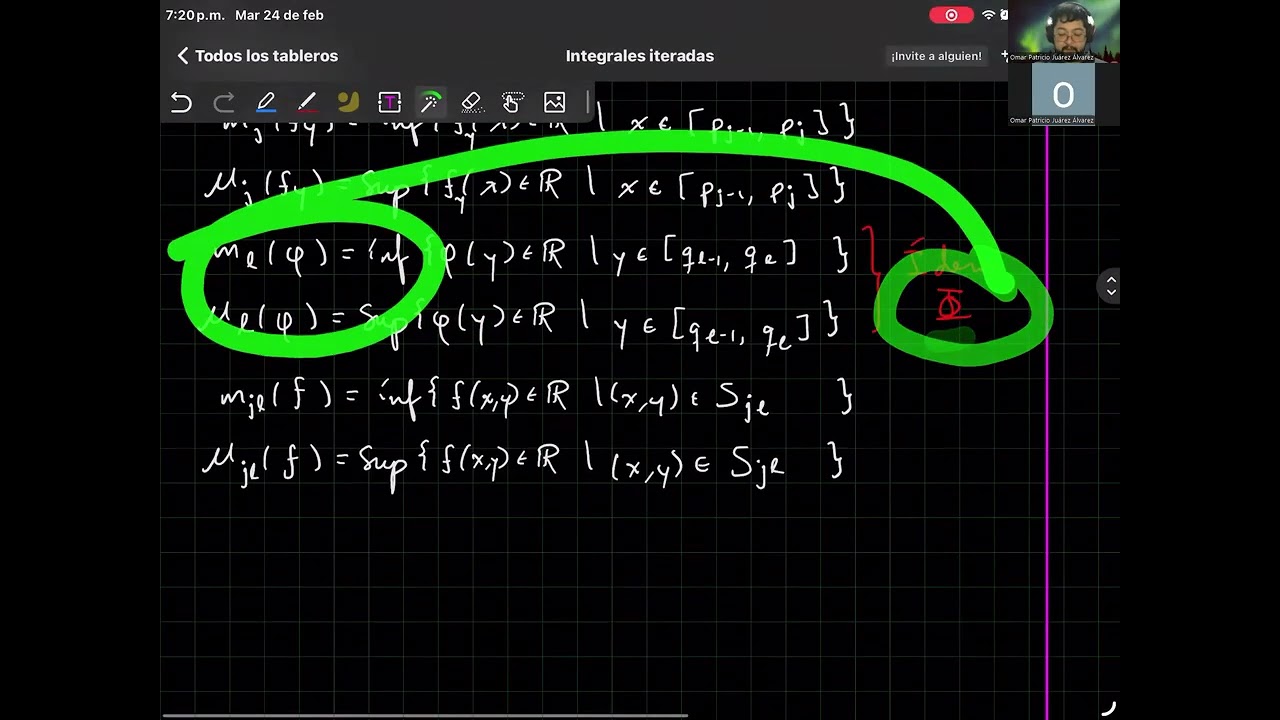 7:20 p.m. Mar 24 de feb
Todos los tableros
Integrales iteradas
¡Invite a alguien!
Omar Patricio Juárez Álvarez
O
Omar Patricio Juárez Álvarez
m_j(f_y) = inf{ f_y(x) ∈ ℝ | x ∈ [p_{j-1}, p_j] }
M_j(f_y) = Sup{ f_y(x) ∈ ℝ | x ∈ [p_{j-1}, p_j] }
m_ℓ(φ) = inf{ φ(y) ∈ ℝ | y ∈ [q_{ℓ-1}, q_ℓ] }
M_ℓ(φ) = Sup{ φ(y) ∈ ℝ | y ∈ [q_{ℓ-1}, q_ℓ] }
} Idem
Φ
m_{jℓ}(f) = inf{ f(x,y) ∈ ℝ | (x,y) ∈ S_{jℓ} }
M_{jℓ}(f) = Sup{ f(x,y) ∈ ℝ | (x,y) ∈ S_{jℓ} }